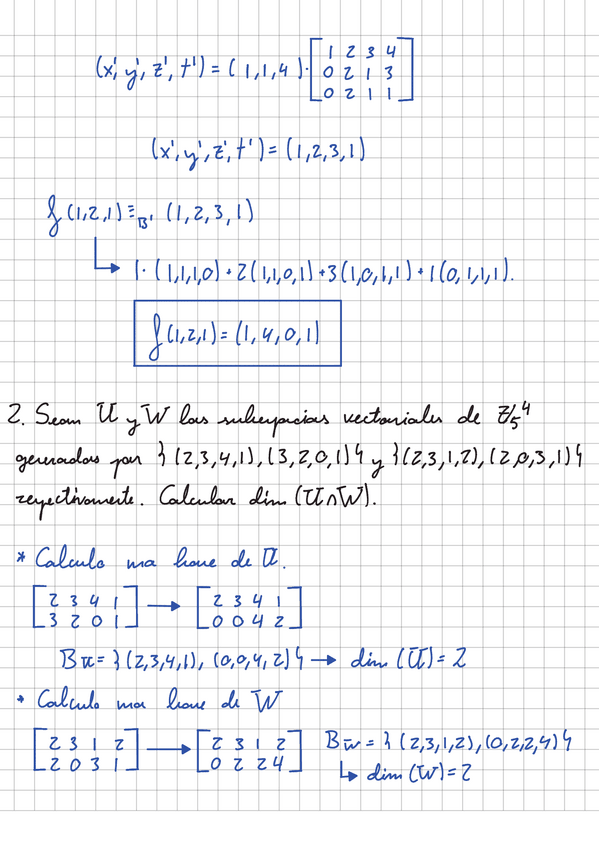 (x', y', z', t') = (1,1,4) · [1 2 3 4
0 2 1 3
0 2 1 1]
(x', y', z', t') = (1,2,3,1)
f(1,2,1) ≡B' (1,2,3,1)
↳ 1·(1,1,1,0)+2(1,1,0,1)+3(1,0,1,1)+1(0,1,1,1).
f(1,2,1)=(1,4,0,1)
2. Sean U y W los subespacios vectoriales de Z/5⁴
generados por {(2,3,4,1),(3,2,0,1)} y {(2,3,1,2),(2,0,3,1)}
respectivamente. Calcular dim (U∩W).
* Calculo una base de U.
[2 3 4 1 → [2 3 4 1
3 2 0 1] 0 0 4 2]
BU = {(2,3,4,1), (0,0,4,2)} → dim (U) = 2
* Calculo una base de W
[2 3 1 2 → [2 3 1 2 BW = {(2,3,1,2),(0,2,2,4)}
2 0 3 1] 0 2 2 4] ↳ dim (W)=2